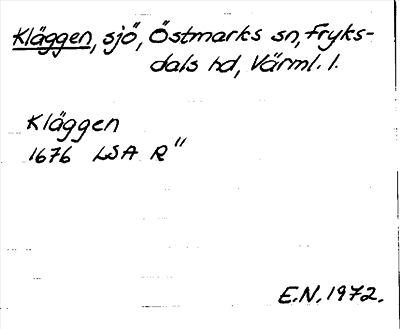 Kläggen, sjö, Östmarks sn, Fryks-
dals hd, Värml. l.
Kläggen
1676 LSA R"
E.N. 1972.